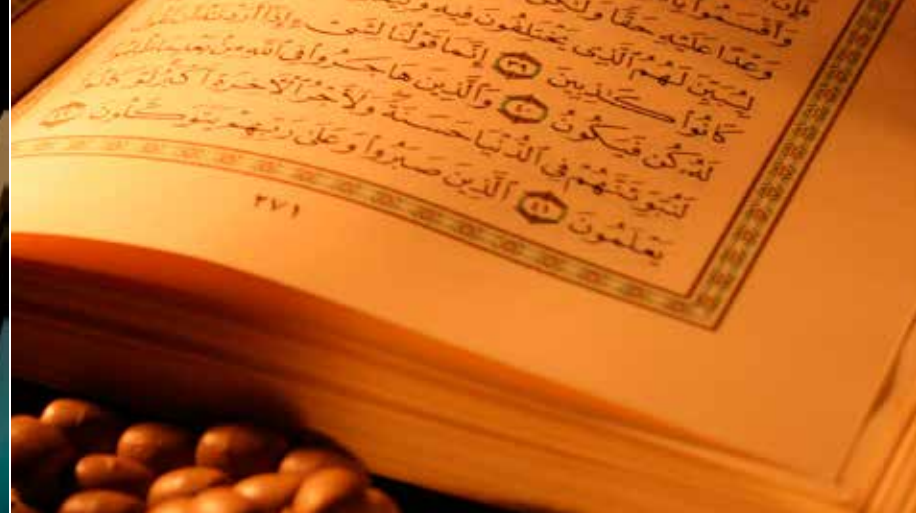 فَإِنَّ
وَأَقْسَمُوا۟ بِا
وَعْدًا عَلَيْهِ حَقًّا وَلَٰكِنَّ
لِيُبَيِّنَ لَهُمُ ٱلَّذِى يَخْتَلِفُونَ فِيهِ وَلِيَعْلَمَ
كَانُوا۟ كَٰذِبِينَ ٣٩ إِنَّمَا قَوْلُنَا لِشَىْءٍ إِذَآ أَرَدْنَٰهُ أَن نَّقُولَ
لَهُۥ كُن فَيَكُونُ ٤٠ وَٱلَّذِينَ هَاجَرُوا۟ فِى ٱللَّهِ مِنۢ بَعْدِ مَا ظُلِمُوا۟
لَنُبَوِّئَنَّهُمْ فِى ٱلدُّنْيَا حَسَنَةً وَلَأَجْرُ ٱلْءَاخِرَةِ أَكْبَرُ لَوْ كَانُوا۟
يَعْلَمُونَ ٤١ ٱلَّذِينَ صَبَرُوا۟ وَعَلَىٰ رَبِّهِمْ يَتَوَكَّلُونَ ٤٢
٢٧١